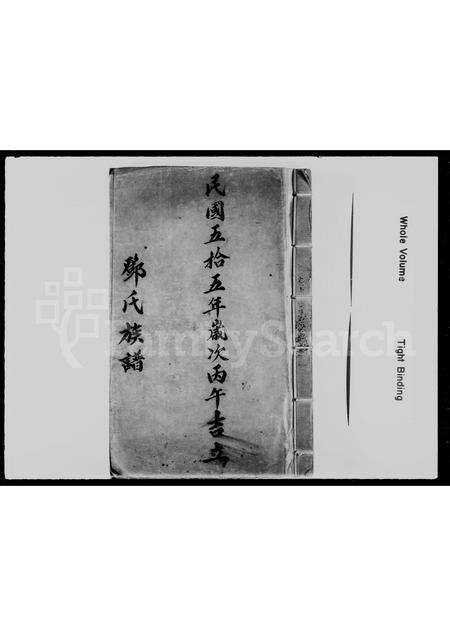 民國五拾五年歲次丙午吉立
鄧氏族譜
Whole Volume
Tight Binding
FamilySearch